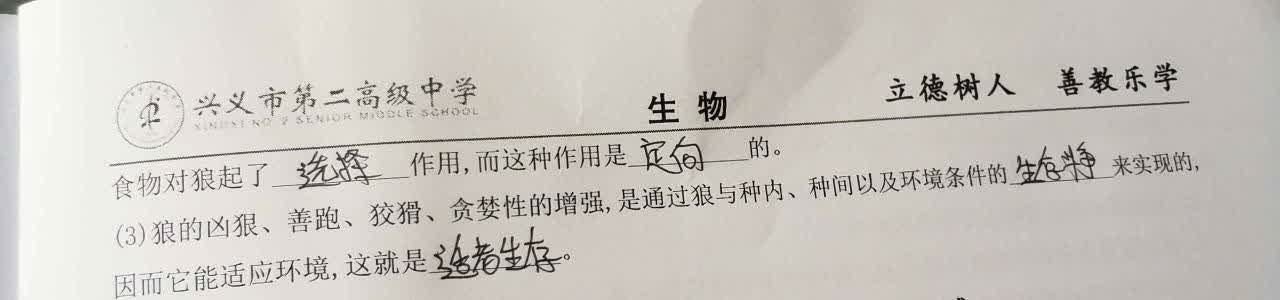 兴义市第二高级中学
XINGYI NO 2 SENIOR MIDDLE SCHOOL
生物
立德树人 善教乐学
食物对狼起了选择作用,而这种作用是定向的。
(3)狼的凶狠、善跑、狡猾、贪婪性的增强,是通过狼与种内、种间以及环境条件的生存斗争来实现的,
因而它能适应环境,这就是适者生存。